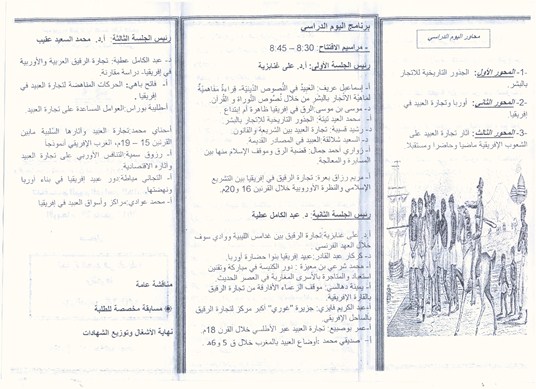 محاور اليوم الدراسي
-1-المحور الأول: الجذور التاريخية للاتجار
بالبشر.
-2- المحور الثاني: أوربا وتجارة العبيد في
إفريقيا.
-3- المحور الثالث: آثار تجارة العبيد على
الشعوب الإفريقية ماضيا وحاضرا ومستقبلا.
برنامج اليوم الدراسي
- مراسيم الافتتاح: 8:30 – 8:45
رئيس الجلسة الأولى: أ.د. على غنابزية
أ- إسماعيل عريف: العبيد في النصوص الدينية، قراءة مفاهيمية
لماهية الاتجار بالبشر من خلال نصوص التوراة و القرآن.
د- موسى بن موسى: الرق في إفريقيا ظاهرة أم ابتداع
أ- محمد العيد تيتة: الجذور التاريخية للاتجار بالبشر.
د- رشيد قسيبة: تجارة العبيد بين الشريعة والقانون.
د- السعيد شلالقة: العبيد في المصادر القديمة
أ- زواري أحمد جمال: قضية الرق وموقف الإسلام منها بين
المسايرة والمعالجة.
أ- مريم رزاق بعرة: تجارة الرقيق في إفريقيا بين التشريع
الإسلامي والنظرة الأوروبية خلال القرنين 16 و20م.
رئيس الجلسة الثانية: د. عبد الكامل عطية
أ.د. على غنابزية: تجارة الرقيق بين غدامس الليبية ووادي سوف
خلال العهد الفرنسي.
د- كركار عبد القادر: عبيد إفريقيا بنوا حضارة أوربا.
د- محمد شرعي بن معيزة: دور الكنيسة في مباركة وتقنين
استعباد والمتاجرة بالأسرى المغاربة في العصر الحديث.
أ- يمينة دهالسي: موقف الزعماء الأفارقة من تجارة الرقيق
بالقارة الإفريقية.
أ- عبد الكريم فايزي: جزيرة "غوري" أكبر مركز لتجارة الرقيق
بالساحل الإفريقي.
أ- عمر بوصبيع: تجارة العبيد عبر الأطلسي خلال القرن 18م.
أ- صديقي محمد: أوضاع العبيد بالمغرب خلال ق 5 و6هـ.
رئيس الجلسة الثالثة: أ.د. محمد السعيد عقيب
د- عبد الكامل عطية: تجارة الرقيق العربية والأوربية
في إفريقيا- دراسة مقارنة.
أ- فاتح باهي: الحركات المناهضة لتجارة العبيد في
إفريقيا.
أ- بوراس: العوامل المساعدة على تجارة العبيد
أ-حناي محمد: تجارة العبيد وآثارها السلبية مابين
القرنين 15 – 19م، الغرب الإفريقي أنموذجا
أ- رزوق سمية: التنافس الأوربي على تجارة العبيد
وآثاره الاقتصادية.
أ- التجاني مياطة: دور عبيد إفريقيا في بناء أوربا
ونهضتها.
أ- محمد غوادي: مراكز وأسواق العبيد في إفريقيا
مناقشة عامة
مسابقة مخصصة للطلبة
نهاية الأشغال وتوزيع الشهادات